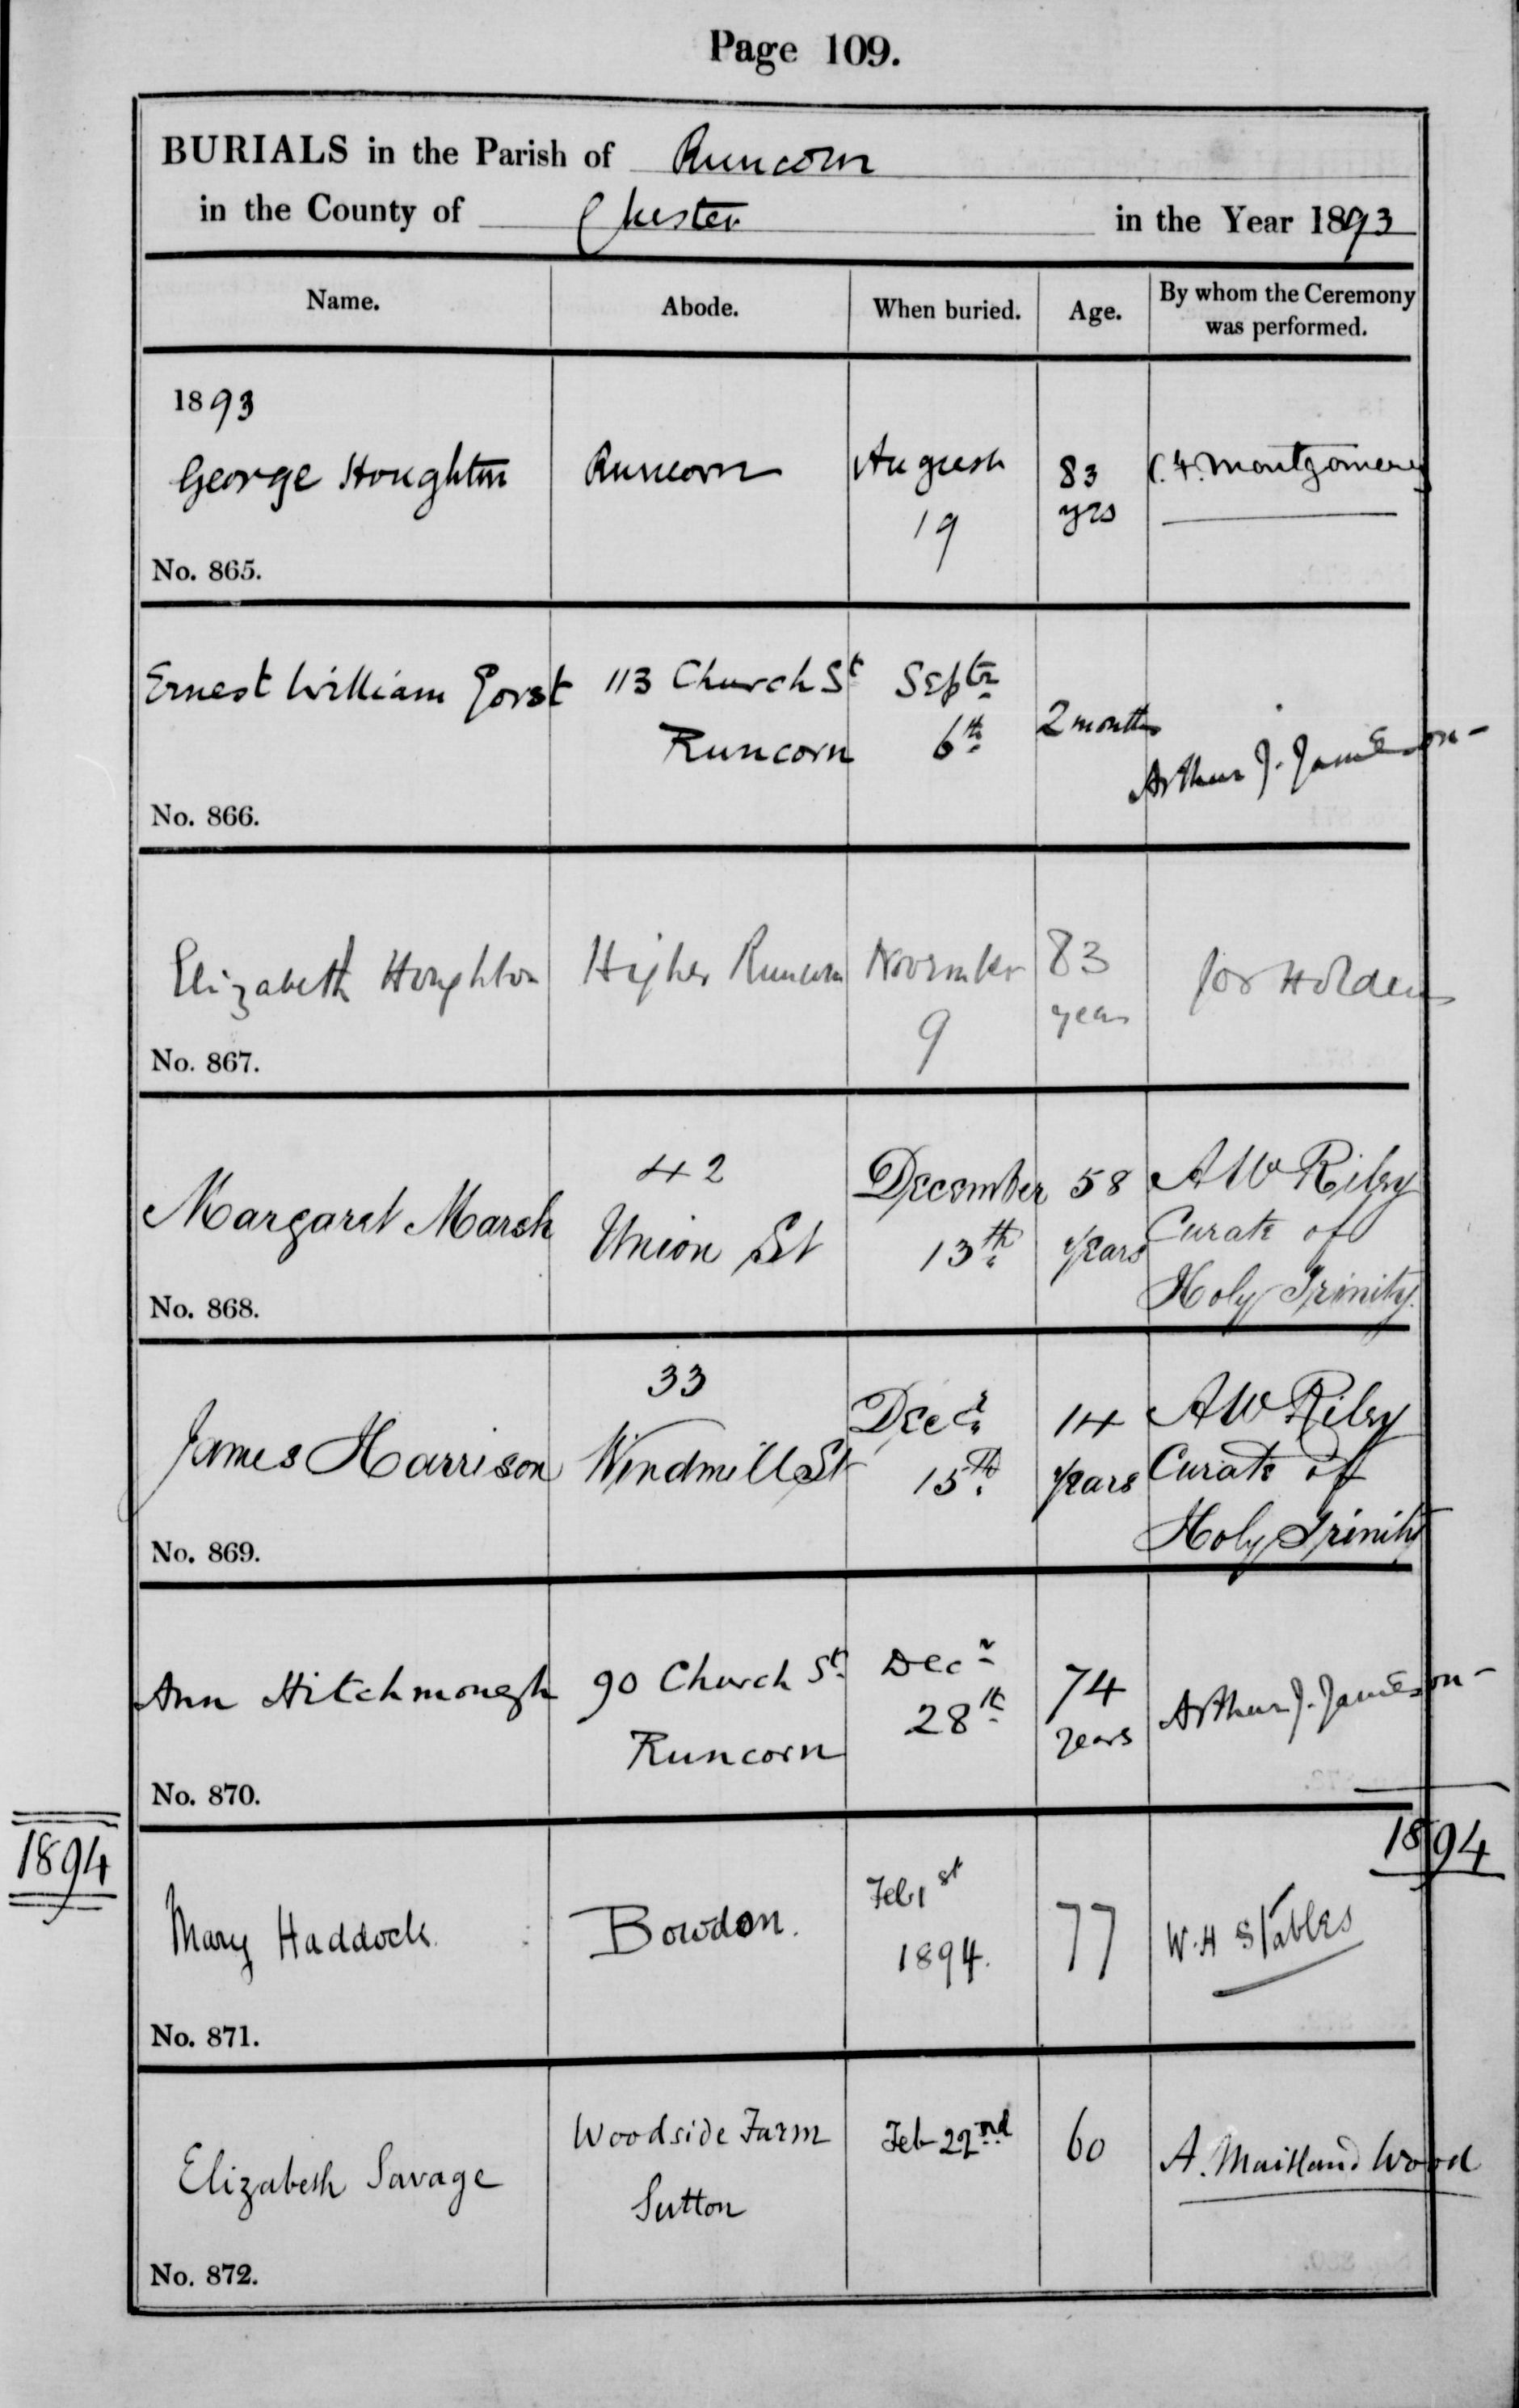 Page 109.
BURIALS in the Parish of Runcorn
in the County of Chester in the Year 1893
Name. Abode. When buried. Age. By whom the Ceremony was performed.
1893
George Houghton Runcorn August 19 83 yrs Montgomery
No. 865.
Ernest William Gorst 113 Church St Runcorn Septr 6th 2 months Arthur J. Jameson
No. 866.
Elizabeth Houghton Higher Runcorn November 9 83 years Holden
No. 867.
Margaret Marsh 42 Union St December 13th 58 years AW Riley Curate of Holy Trinity.
No. 868.
James Harrison 33 Windmill St Decr 15th 14 years AW Riley Curate of Holy Trinity
No. 869.
Ann Hitchmough 90 Church St Runcorn Decr 28th 74 years Arthur J. Jameson
No. 870.
1894 1894
Mary Haddock. Bowdon. Feb 1st 1894. 77 W. H Stables
No. 871.
Elizabeth Savage Woodside Farm Sutton Feb 22nd 60 A. Maitland Wood
No. 872.